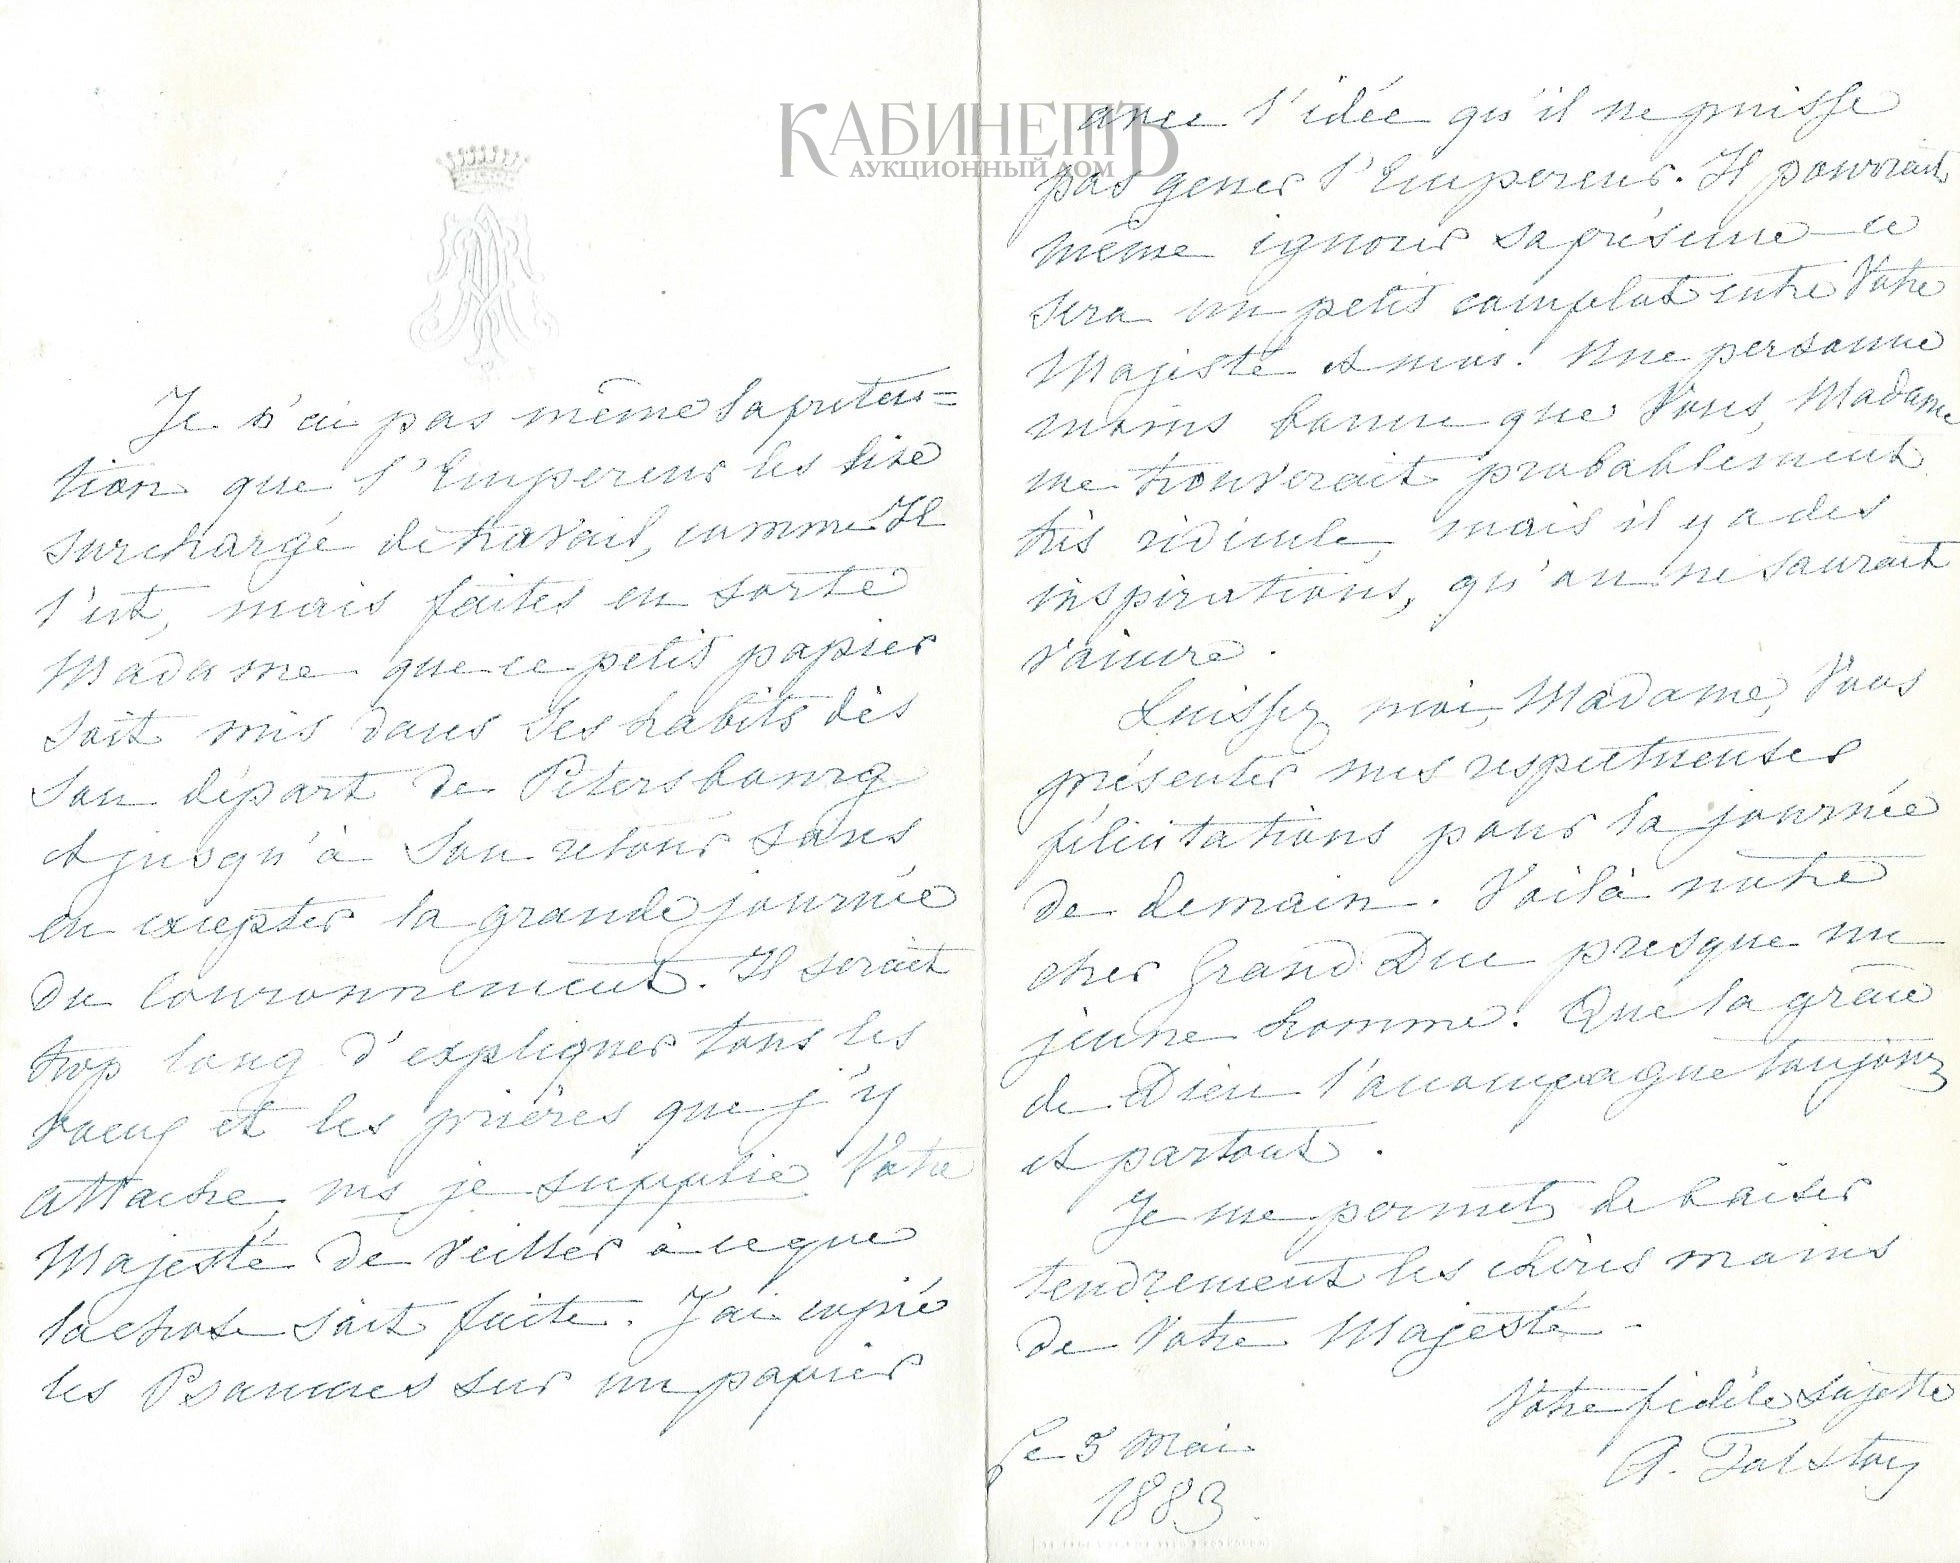 КАБИНЕТЪ
АУКЦИОННЫЙ ДОМ
Je n'ai pas même la préten=
tion que l'Empereur les lise
surchargé de travail, comme Il
l'est, mais faites en sorte
Madame que ce petit papier
soit mis dans Ses habits dès
Son départ de Pétersbourg
et jusqu'à Son retour sans
en excepter la grande journée
du Couronnement. Il serait
trop long d'expliquer tous les
voeux et les prières que j'y
attache, ms je supplie Votre
Majesté de veiller à ce que
la chose soit faite. J'ai copié
les Psaumes sur un papier
avec l'idée qu'il ne puisse
pas gener l'Empereur. Il pourrait
même ignorer sa présence ce
sera un petit complot entre Votre
Majesté et moi! Une personne
moins bonne que Vous, Madame
me trouverait probablement
très ridicule, mais il y a des
inspirations, qu'on ne saurait
vaincre.
Laissez moi, Madame, Vous
présenter mes respectueuses
félicitations pour la journée
de demain. Voilà notre
cher Grand Duc presque un
jeune homme. Que la grâce
de Dieu l'accompagne toujours
et partout.
Je me permets de baiser
tendrement les chères mains
de Votre Majesté.
Votre fidèle sujette
A. Tolstoy
Ce 5 Mai
1883.